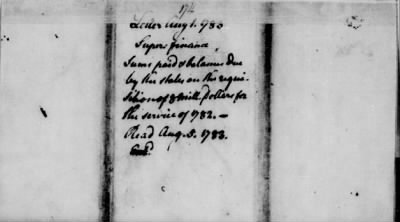 174
Letter Aug 1. 1783
Super: finance,
Sums paid & balances due
by the states on the requi-
sition of 8 mill. Dollars for
the service of 1782. —
Read Aug. 5. 1783.